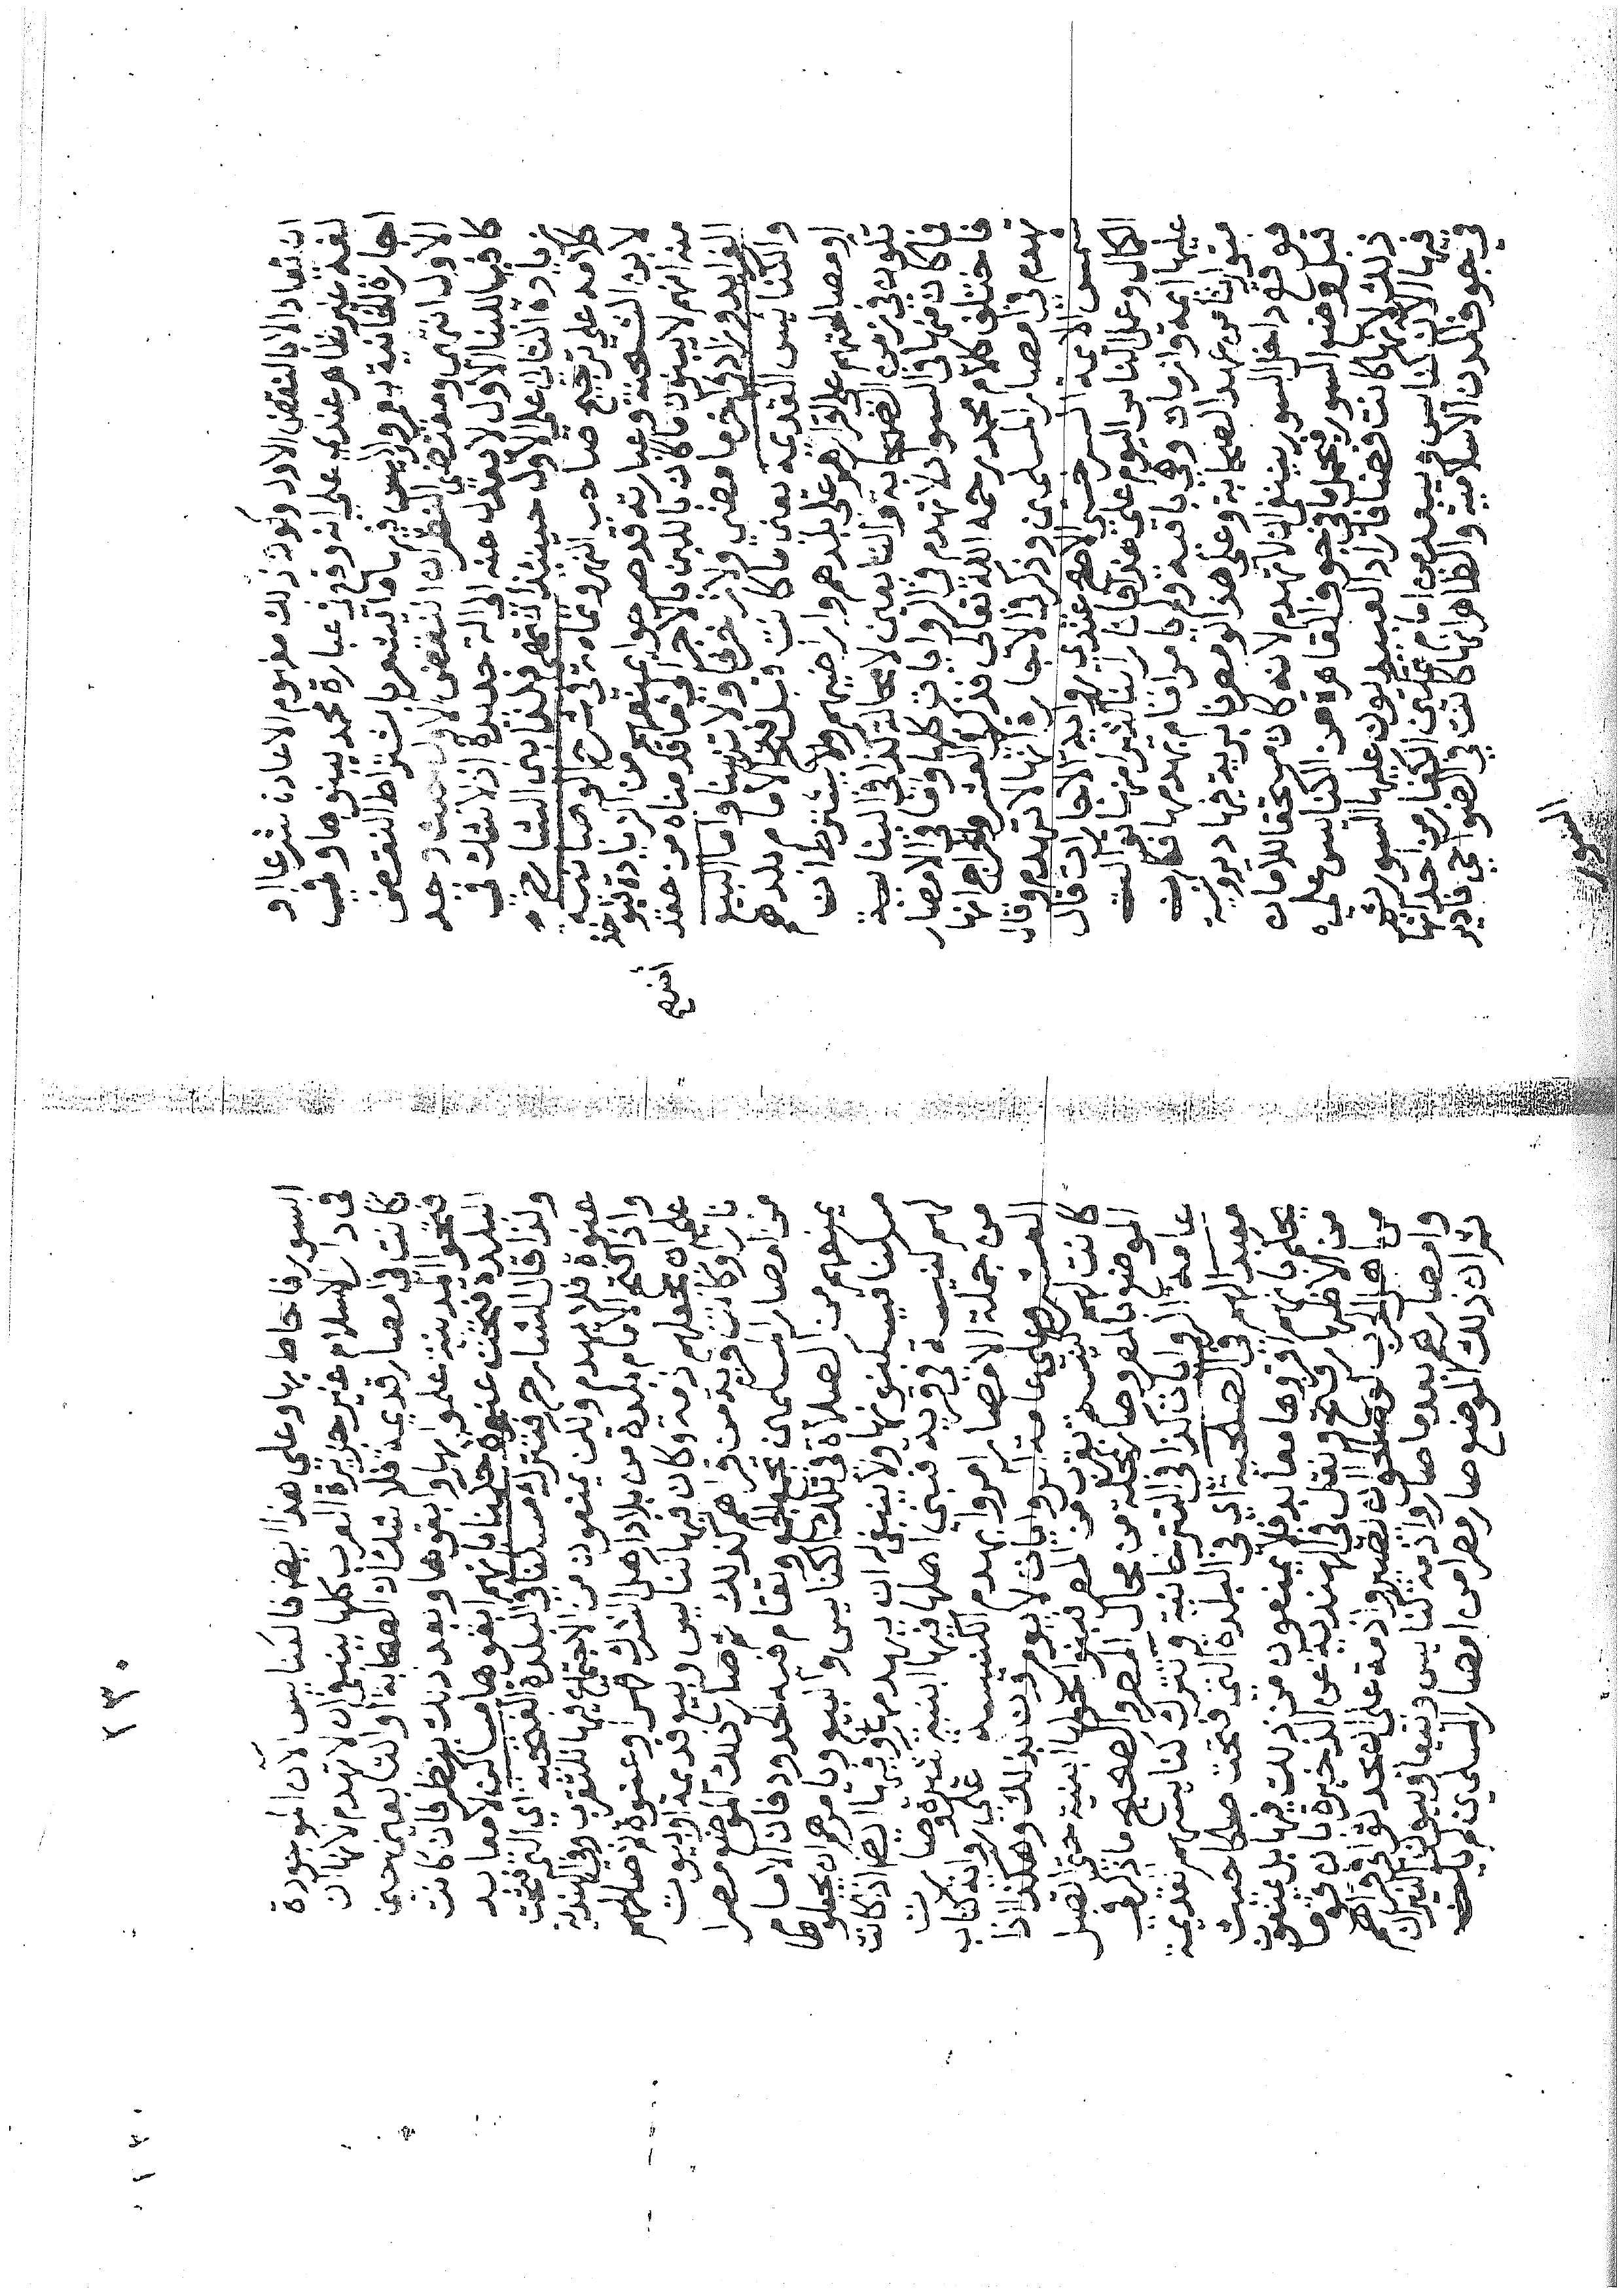 ان تعاد الا بالنقض الاول وكون ذلك مفهوم الاعادة شرعا او
لغة غير ظاهر عندي على انه وقع في عبارة محمد يبنوها وفي
اجارة الخانية يعمروا وليس فيهما ما يشعر باشتراط النقض
الاول انتهى ومقتضى النظر ان النقض الاول حيث وجد
كافيا للبنا الاول لا يعدل عنه الى الة جديدة اذ لا شك في
زيادة الثاني على الاول حينئذ انتهى
كلامه على ترجيح صاحب النهر وتمامه في شرح الوهبانية
لابن الشحنة وعبارته قد صح جوابي منعهم من الزيادة فيؤخذ
منه انهم لا يبنون ما كان باللبن بالاجر
الفوايد وزاد في اخرها وفضي ولا زخرفا ولا تزيينا واما البيع
والكنايس القديمة يعني ما كانت قبل فتح الامام بلدهم
او مصالحتهم على اقرارهم على بلدهم واراضيهم ولا يشترط ان
تكون في زمن الصحابة والتابعين لا محالة كذا في البناية
فما كان منها في السواد لا تهدم في الروايات كلها واما في الامصار
فاختلف كلام محمد رحمه الله تعالى فذكر في العشر والخراج انها
تهدم في امصار المسلمين وذكر في الاجارة انها لا تهدم وقال
شمس الائمة السرخسي الاصح عندي رواية الاجارات قال
الكمال وعمل الناس اليوم على هذا فانا راينا كثيرا منها توالت
عليها ائمة وازمان وهي باقية ولم يامر امام بهدمها فكان
متوارثا من عهد الصحابة وعلى هذا لو مصرنا برية فيها دير
فوقع داخل السور ينبغي ان لا تهدم لانه كان مستحقا للامان
قبل وضع السور فيحمل ما في جوف القاهرة من الكنايس على
ذلك لانها كانت فضا فادار العبيديون عليها السور ثم
فيها الان كنايس ويبعد من امام تمكين الكفار من احداثها
في جوف المدن الاسلامية والظاهر انها كانت في الضواحي فادير
السور
السور فاحاط بها وعلى هذا ايضا فالكنايس الان الموجودة
في دار الاسلام غير جزيرة العرب كلها ينبغي ان لا تهدم لانها ان
كانت في امصار قديمة فلا شك ان الصحابة او التابعين حين
فتحوا المدينة علموا بها وابقوها وبعد ذلك ينظر فان كانت
البلدة فتحت عنوة حكمنا بانهم ابقوها مساكن لا معابد
ولذا قال الشارح فتترك مسكنا في البلدة الفتحية اي التي فتحت
عنوة فلا تهدم ولكن يمنعون من الاجتماع فيها للتقرب وفي الهندية
واذا فتح الامام بلدة من بلاد اهل الشرك قهرا وعنوة ثم صالحهم
على ان يجعلهم ذمة وكان فيها كنايس وبيع قديمة او بيوت
نار او كانت قرية من قراهم كذلك ثم صار ذلك الموضع مصرا
من امصار المسلمين تجمع الجمع وتقام فيه الحدود فان الامام
يمنعهم من الصلاة في تلك الكنايس والبيع ويامرهم ان يجعلوها
مسكنا فيسكنونها ولا ينبغي له ان يهدمها وفيها ايضا اذا كانت
لهم كنيسة في قرية فبنى اهلها فيها ابنية كثيرة وصارت
من جملة الامصار امروا بهدم الكنيسة على رواية كتاب
العشر وعلى عامة الروايات لا يؤمرون بذلك وهكذا اذا
كانت لهم كنيسة بقرب من المصر فبنوا حولها ابنية حتى اتصل
الموضع بالمصر وصار كمحلة من محال المصر والصحيح ما ذكر في
عامة الروايات كذا في التترخانية وتترك كنايسهم القديمة
معبدا لهم في الصلحية اي في البلدة التي فتحت صلحا حيث
يحكم بانهم اقروها معابد فلا يمنعون من ذلك فيها بل يمنعون
من الاظهار فتح ونقل في الهندية عن الذخيرة بان قوما
من اهل الحرب لو صالحوا ان تصير ذمة على الحدثوا في قراهم
وامصارهم بعد ما صاروا ذمة كنايس وبيعا وبيوت النيران
ثم ان ذلك الموضع صار مصرا من امصار المسلمين فليس
١٣٠